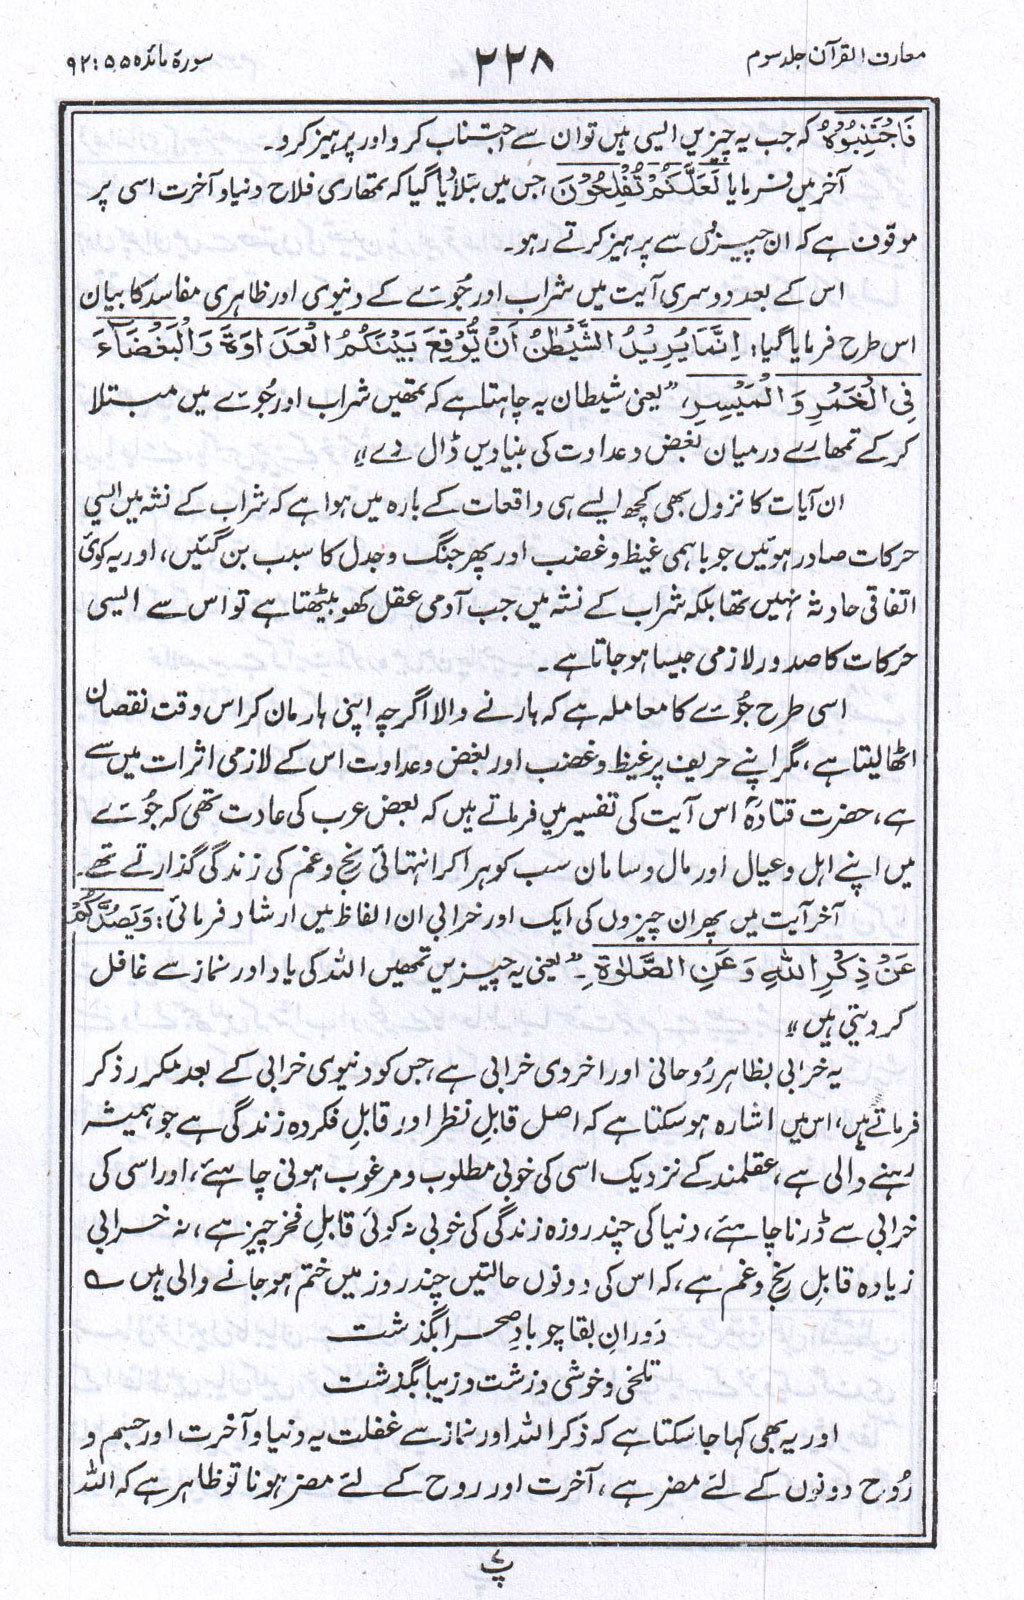 معارف القرآن جلد سوم
۲۲۸
سورۃ مائدہ ۵ : ۹۲
فَاجْتَنِبُوْهُ کہ جب یہ چیزیں ایسی ہیں تو ان سے اجتناب کرو اور پرہیز کرو۔
آخر میں فرمایا لَعَلَّكُمْ تُفْلِحُوْنَ، جس میں بتلایا گیا کہ تمھاری فلاح دنیا و آخرت اسی پر
موقوف ہے کہ ان چیزوں سے پرہیز کرتے رہو۔
اس کے بعد دوسری آیت میں شراب اور جُوئے کے دنیوی اور ظاہری مفاسد کا بیان
اس طرح فرمایا گیا: اِنَّمَا يُرِيْدُ الشَّيْطٰنُ اَنْ يُّوْقِعَ بَيْنَكُمُ الْعَدَاوَةَ وَالْبَغْضَآءَ
فِي الْخَمْرِ وَالْمَيْسِرِ، "یعنی شیطان یہ چاہتا ہے کہ تمھیں شراب اور جُوئے میں مبتلا
کرکے تمھارے درمیان بغض و عداوت کی بنیادیں ڈال دے"
ان آیات کا نزول بھی کچھ ایسے ہی واقعات کے بارہ میں ہوا ہے کہ شراب کے نشہ میں ایسی
حرکات صادر ہوئیں جو باہمی غیظ و غضب اور پھر جنگ و جدل کا سبب بن گئیں، اور یہ کوئی
اتفاقی حادثہ نہیں تھا بلکہ شراب کے نشہ میں جب آدمی عقل کھو بیٹھتا ہے تو اس سے ایسی
حرکات کا صدور لازمی جیسا ہو جاتا ہے۔
اسی طرح جُوئے کا معاملہ ہے کہ ہارنے والا اگرچہ اپنی ہار مان کر اس وقت نقصان
اٹھا لیتا ہے، مگر اپنے حریف پر غیظ و غضب اور بغض و عداوت اس کے لازمی اثرات میں سے
ہے، حضرت قتادہؒ اس آیت کی تفسیر میں فرماتے ہیں کہ بعض عرب کی عادت تھی کہ جُوئے
میں اپنے اہل و عیال اور مال و سامان سب کو ہرا کر انتہائی رنج و غم کی زندگی گذارتے تھے۔
آخر آیت میں پھر ان چیزوں کی ایک اور خرابی ان الفاظ میں ارشاد فرمائی: وَيَصُدَّكُمْ
عَنْ ذِكْرِ اللّٰهِ وَعَنِ الصَّلٰوةِ۔ "یعنی یہ چیزیں تمھیں اللہ کی یاد اور نماز سے غافل
کر دیتی ہیں"
یہ خرابی بظاہر رُوحانی اور اخروی خرابی ہے، جس کو دنیوی خرابی کے بعد مکرر ذکر
فرماتے ہیں، اس میں اشارہ ہو سکتا ہے کہ اصل قابلِ نظر اور قابلِ فکر وہ زندگی ہے جو ہمیشہ
رہنے والی ہے، عقلمند کے نزدیک اسی کی خوبی مطلوب و مرغوب ہونی چاہئے، اور اسی کی
خرابی سے ڈرنا چاہئے، دنیا کی چند روزہ زندگی کی خوبی نہ کوئی قابلِ فخر چیز ہے، نہ خرابی
زیادہ قابلِ رنج و غم ہے، کہ اس کی دونوں حالتیں چند روز میں ختم ہو جانے والی ہیں ؎
دَورانِ بقا چو بادِ صحرا بگذشت
تلخی و خوشی و زشت و زیبا بگذشت
اور یہ بھی کہا جا سکتا ہے کہ ذکر اللہ اور نماز سے غفلت یہ دنیا و آخرت اور جسم و
رُوح دونوں کے لئے مضر ہے، آخرت اور روح کے لئے مضر ہونا تو ظاہر ہے کہ اللہ
پ